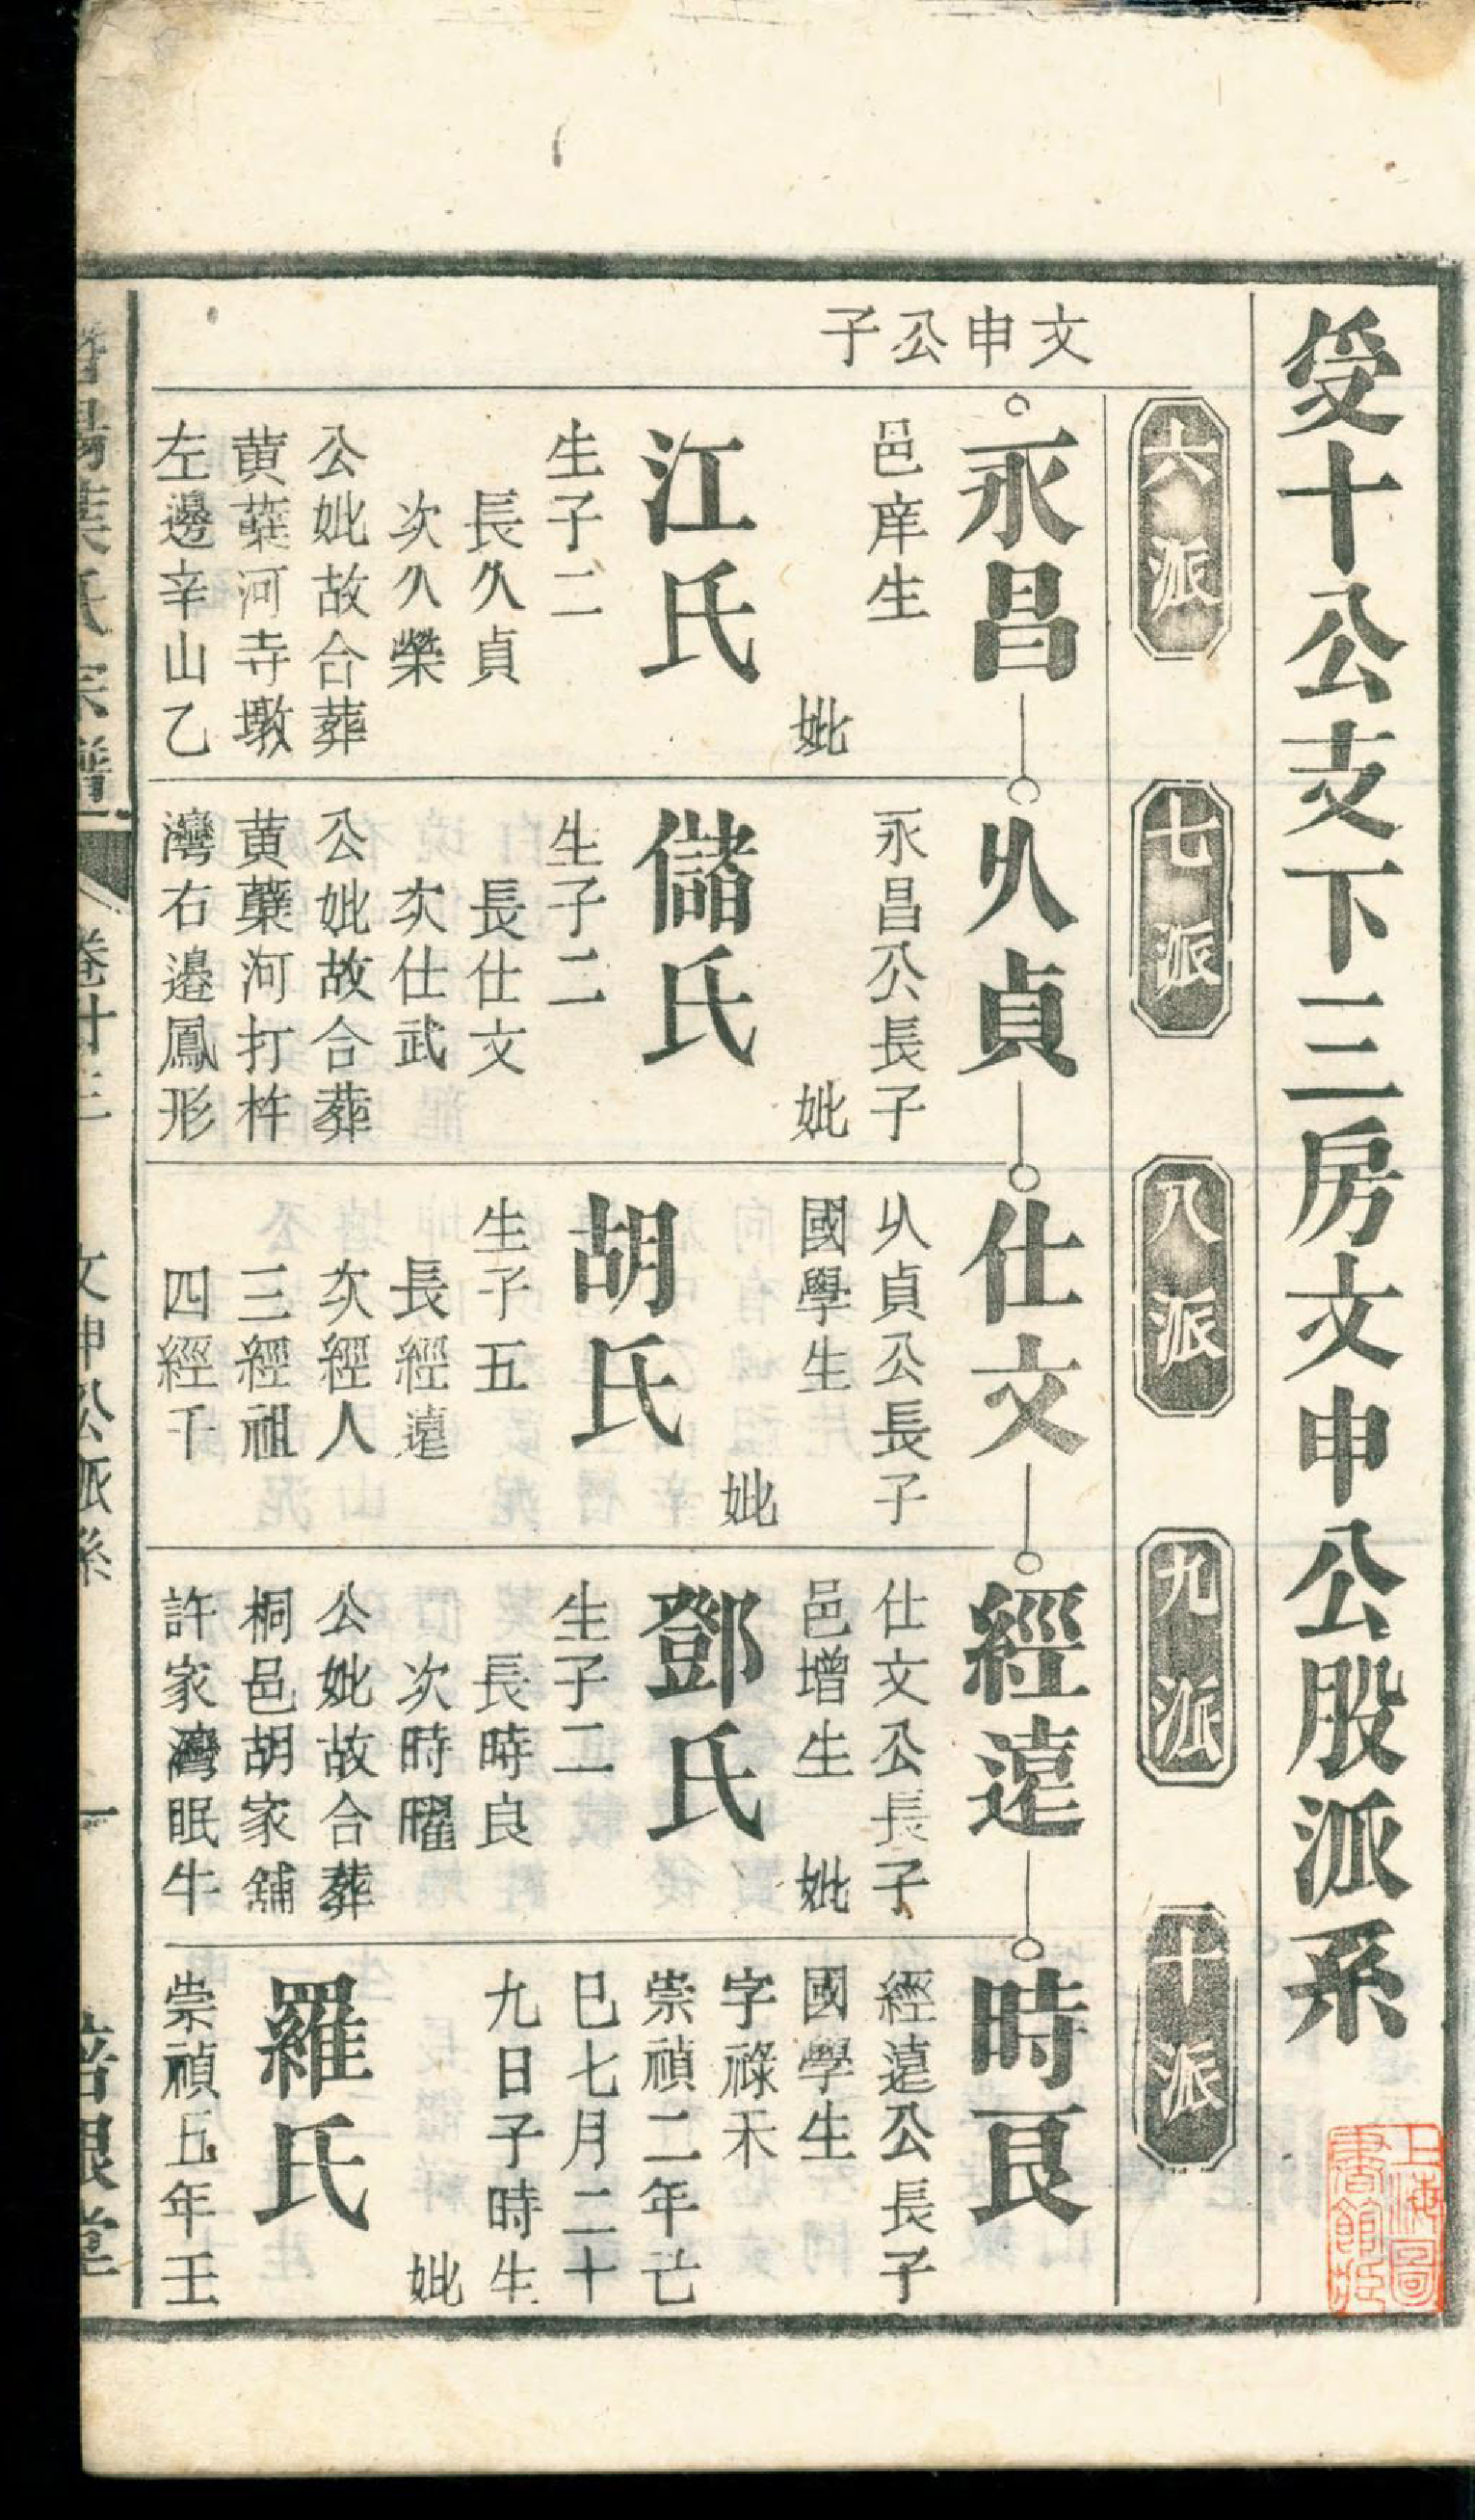 受十公支下三房文申公股派系
六派
七派
八派
九派
十派
文申公子
永昌
邑庠生
妣
江氏
生子二
長久貞
次久榮
公妣故合葬
黄蘗河寺墩
左邊辛山乙
久貞
永昌公長子
妣
儲氏
生子二
長仕文
次仕武
公妣故合葬
黄蘗河打杵
灣右邊鳳形
仕文
久貞公長子
國學生
妣
胡氏
生子五
長經遠
次經人
三經祖
四經千
經遠
仕文公長子
邑增生
妣
鄧氏
生子二
長時良
次時曜
公妣故合葬
桐邑胡家舖
許家灣眠牛
時良
經遠公長子
國學生
字祿禾
崇禎二年亡
巳七月二十
九日子時生
妣
羅氏
崇禎五年壬
葉氏宗譜
卷廿三
文申公派系
一
上海圖書館藏